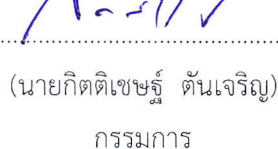 (นายกิตติเชษฐ์ ตันเจริญ)
กรรมการ